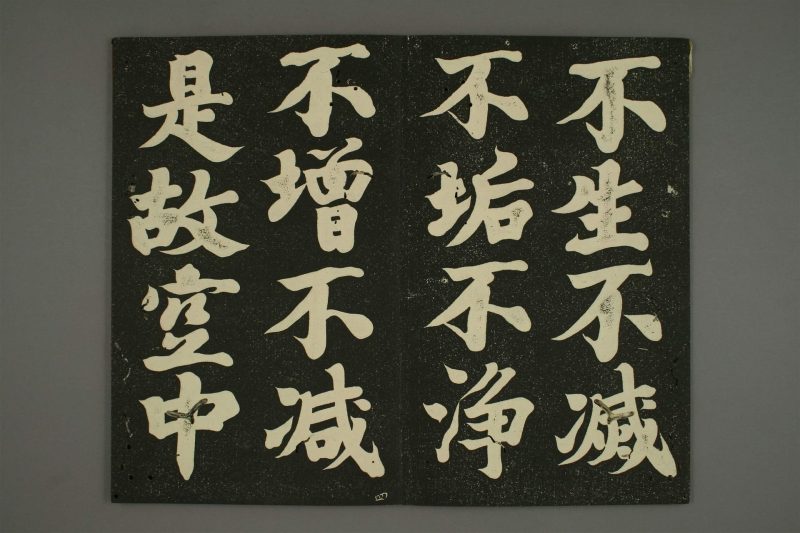 不生不滅
不垢不淨
不增不减
是故空中
四